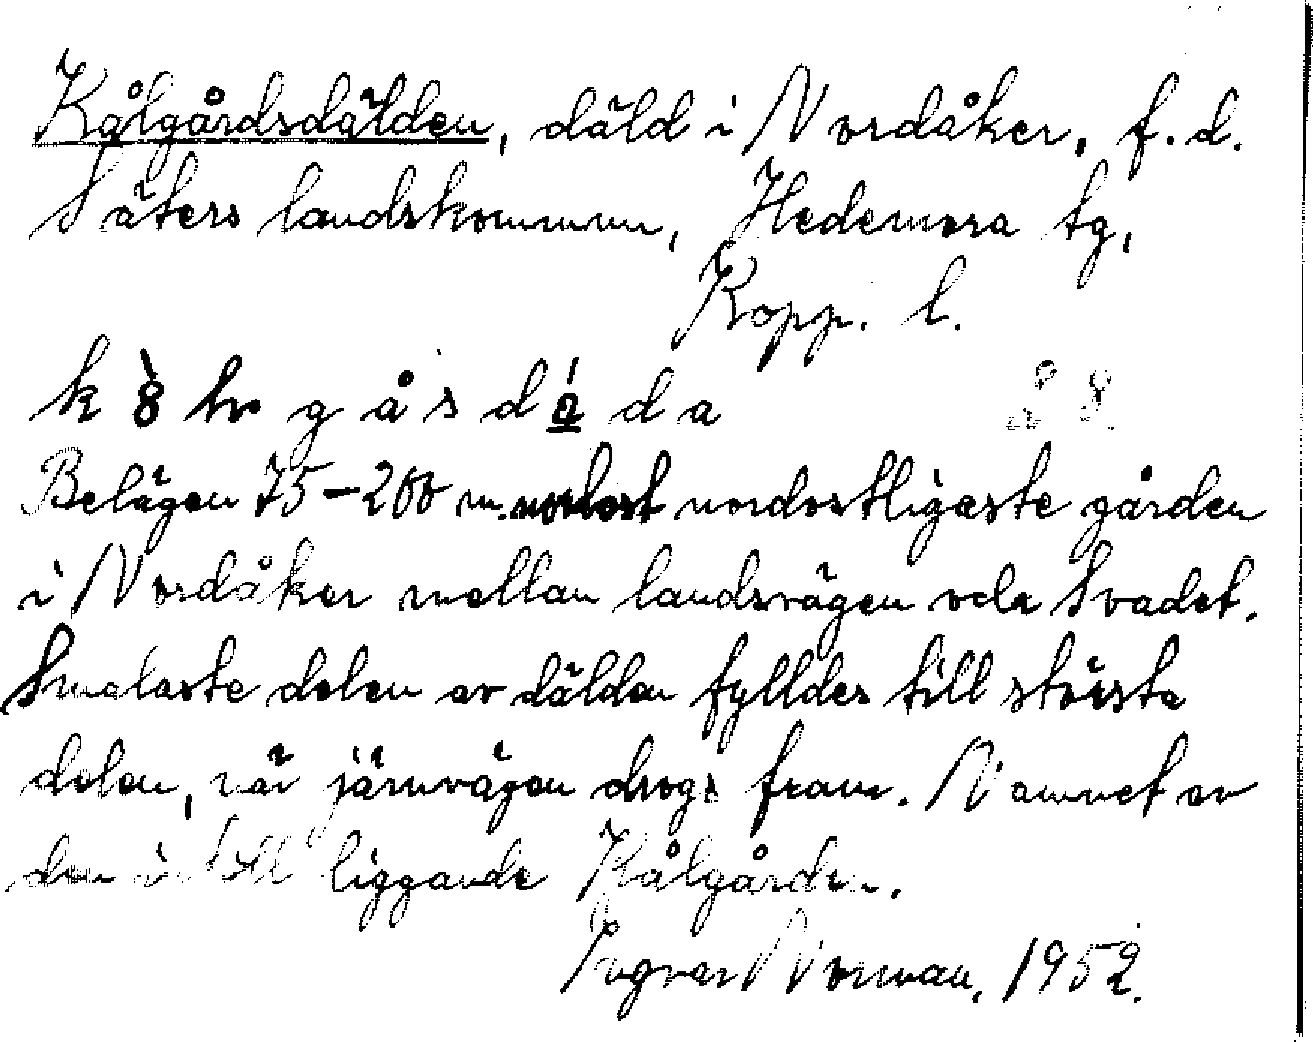 Kålgårdsdälden, däld i Nordåker, f.d.
Säters landskommun, Hedemora tg,
Kopp. l.
g å s d d a
Belägen 75-200 m. nordost nordostligaste gården
i Nordåker mellan landsvägen och Svadet.
Smalaste delen av dälden fylldes till största
delen, när järnvägen drogs fram. Namnet av
den intill liggande Kålgården.
Ingvar Norman, 1952.